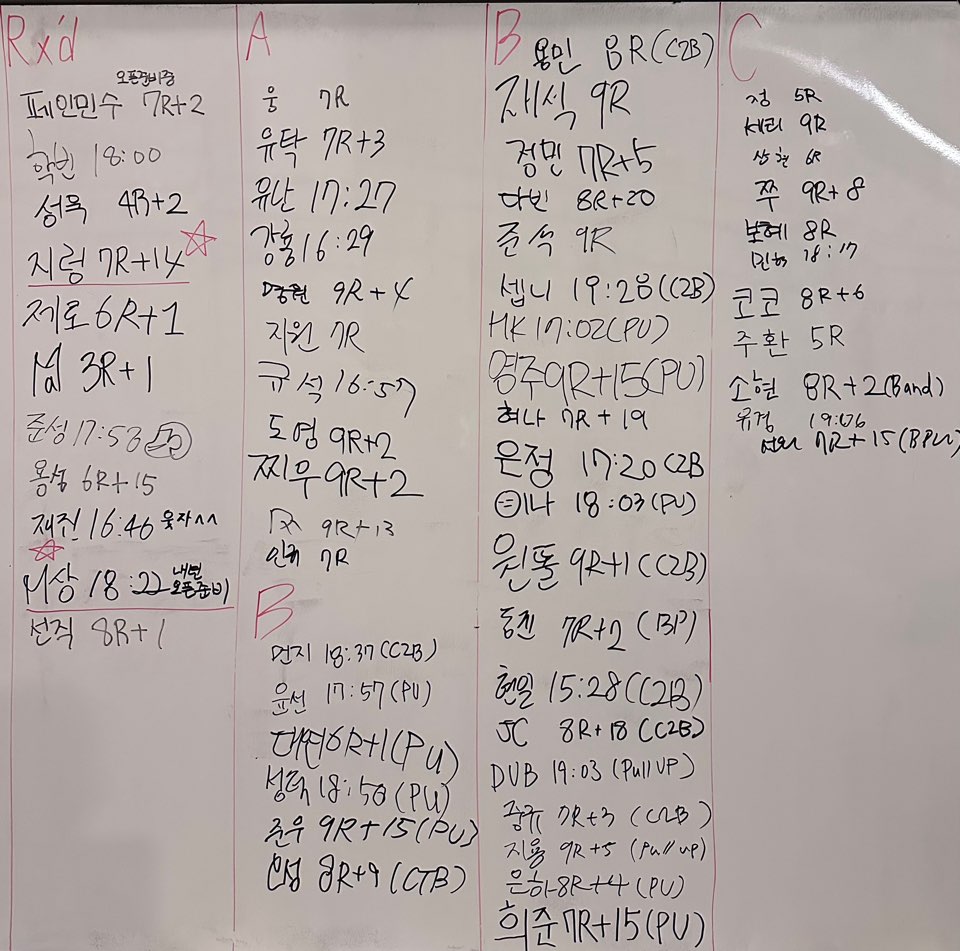 Rx'd
오픈준비중
페인민수 7R+2
학빈 18:00
성욱 4R+2
지렁 7R+14
제로 6R+1
3R+1
준성 17:53
용성 6R+15
재진 16:46 웃자^^
18:22 내년 오픈준비
선직 8R+1
A
웅 7R
유탁 7R+3
유난 17:27
강룡 16:29
명원 9R+4
지원 7R
규석 16:57
도영 9R+2
찌우 9R+2
9R+13
7R
B
먼지 18:37(C2B)
윤선 17:57(PU)
6R+1(PU)
18:50(PU)
준우 9R+15(PU)
8R+9(CTB)
B
용민 8R(C2B)
재식 9R
정민 7R+5
다빈 8R+20
준석 9R
셉니 19:28(C2B)
HK 17:02(PU)
영주 9R+15(PU)
혀나 7R+19
은정 17:20 C2B
18:03(PU)
원돌 9R+1(C2B)
7R+2(BP)
현일 15:28(C2B)
JC 8R+18(C2B)
DUB 19:03(Pull UP)
7R+3(C2B)
지용 9R+5(pull up)
은하 8R+4(PU)
희준 7R+15(PU)
C
정 5R
세리 9R
상현 6R
쭈 9R+8
보혜 8R
18:17
코코 8R+6
주환 5R
소현 8R+2(Band)
유경 19:06
7R+15